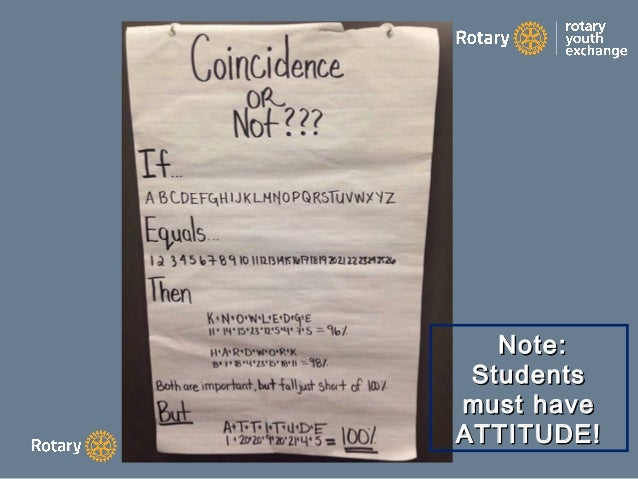 Rotary
rotary
youth
exchange
Coincidence
OR
Not???
If...
ABCDEFGHIJKLMNOPQRSTUVWXYZ
Equals...
1 2 3 4 5 6 7 8 9 10 11 12 13 14 15 16 17 18 19 20 21 22 23 24 25 26
Then
K+N+O+W+L+E+D+G+E
11+14+15+23+12+5+4+7+5 = 96%
H+A+R+D+W+O+R+K
8+1+18+4+23+15+18+11 = 98%
Both are important, but fall just short of 100%
But
A+T+T+I+T+U+D+E
1+20+20+9+20+21+4+5 = 100%
Note:
Students
must have
ATTITUDE!
Rotary